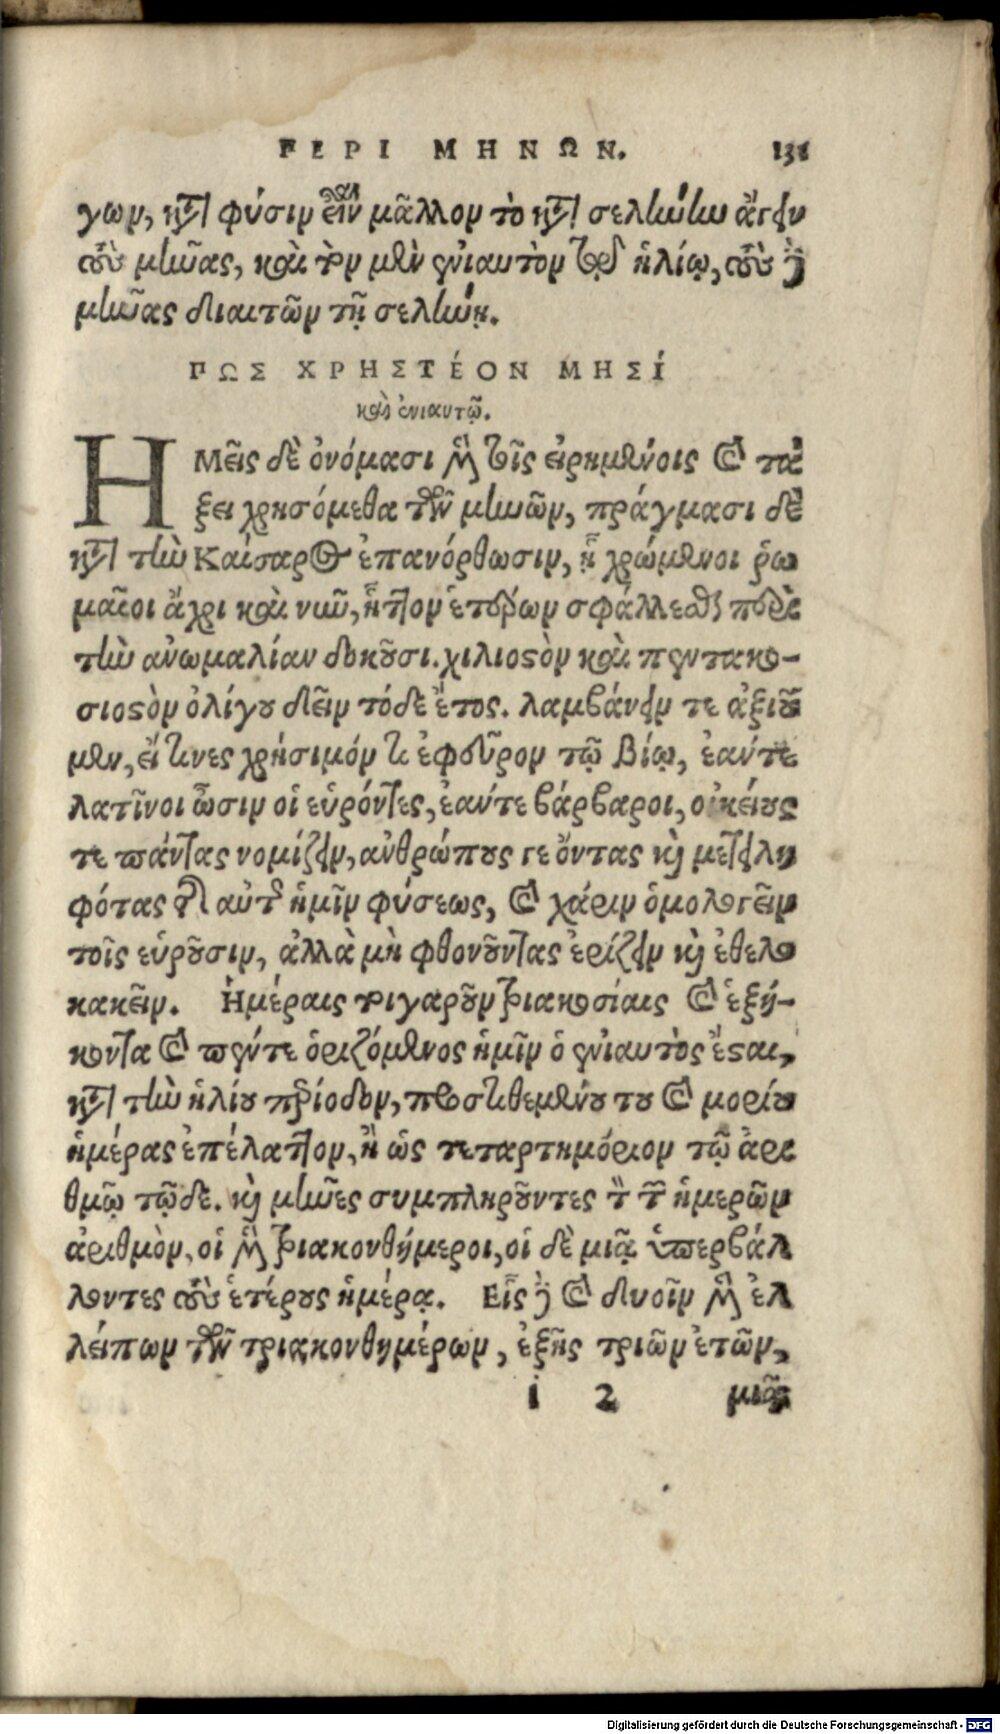 ΠΕΡΙ ΜΗΝΩΝ. 131
γων, κατὰ φύσιν εἶναι μᾶλλον τὸ κατὰ σελήνην ἄγειν
τοὺς μῆνας, καὶ τὸν μὲν ἐνιαυτὸν τοῦ ἡλίου, τοὺς δὲ
μῆνας διαιτῶν τῇ σελήνῃ.
ΠΩΣ ΧΡΗΣΤΈΟΝ ΜΗΣΊ
καὶ ἐνιαυτῷ.
ΗΜεῖς δὲ ὀνόμασι μὲν τοῖς εἰρημένοις καὶ τά
ξει χρησόμεθα τῶν μηνῶν, πράγμασι δὲ
κατὰ τὴν Καίσαρος ἐπανόρθωσιν, ᾗ χρώμενοι ῥω
μαῖοι ἄχρι καὶ νῦν, ἧττον ἑτέρων σφάλλεσθαι περὶ
τὴν ἀνωμαλίαν δοκοῦσι. χιλιοστὸν καὶ πεντακο-
σιοστὸν ὀλίγου δεῖν τόδε ἔτος. λαμβάνειν τε ἀξιοῦ
μεν, εἴ τινες χρήσιμόν τι ἐφεῦρον τῷ βίῳ, ἐάντε
λατῖνοι ὦσιν οἱ εὑρόντες, ἐάντε βάρβαροι, οἰκείους
τε πάντας νομίζειν, ἀνθρώπους γε ὄντας καὶ μετειλη
φότας τῆς αὐτῆς ἡμῖν φύσεως, καὶ χάριν ὁμολογεῖν
τοῖς εὑροῦσιν, ἀλλὰ μὴ φθονοῦντας ἐρίζειν καὶ ἐθελο
κακεῖν. Ἡμέραις τοιγαροῦν τριακοσίαις καὶ ἑξή-
κοντα καὶ πέντε ὁριζόμενος ἡμῖν ὁ ἐνιαυτὸς ἔσται,
κατὰ τὴν ἡλίου περίοδον, προστιθεμένου του καὶ μορίου
ἡμέρας ἐπέλαττον, ἢ ὡς τεταρτημόριον τῷ ἀρι
θμῷ τῷδε. καὶ μῆνες συμπληροῦντες τὸν τῶν ἡμερῶν
ἀριθμὸν, οἱ μὲν τριακονθήμεροι, οἱ δὲ μιᾷ ὑπερβάλ
λοντες τοὺς ἑτέρους ἡμέρᾳ. Εἷς δὲ καὶ δυοῖν μὲν ἐλ
λείπων τῶν τριακονθημέρων, ἑξῆς τριῶν ἐτῶν,
i 2 μιᾶς
Digitalisierung gefördert durch die Deutsche Forschungsgemeinschaft - DFG